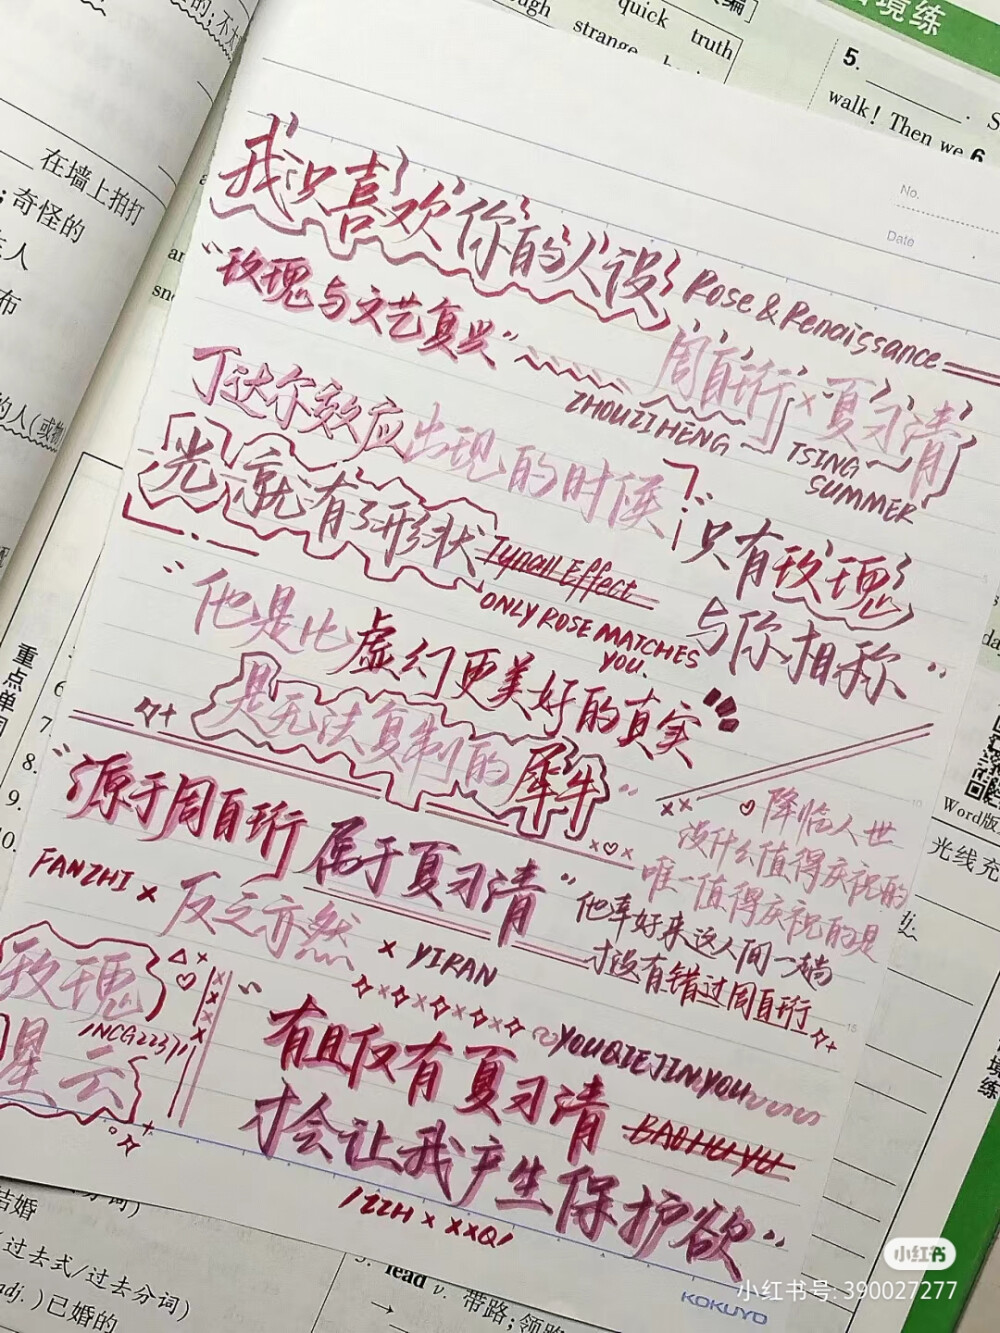 的;不
quick truth
strange
5.
walk! Then we
6
境练
在墙上拍打
;奇怪的
人
布
No.
Date
我只喜欢你的人设
Rose & Renaissance
"玫瑰与文艺复兴"
周自珩×夏习清
ZHOUZIHENG
TSING SUMMER
丁达尔效应出现的时候
光就有了形状
Tynall Effect
"只有玫瑰
与你相称"
ONLY ROSE MATCHES
YOU.
"他是比虚幻更美好的真实"
是无法复制的犀牛"
"源于周自珩 属于夏习清"
降临人世
没什么值得庆祝的
唯一值得庆祝的是
他幸好来这人间一趟
才没有错过周自珩
FANZHI × 反之亦然 × YIRAN
玫瑰
星云
/NCG2237/
"有且仅有夏习清
YOUQIEJINYOU
才会让我产生保护欲"
BAOHUYU
/ZZH × XXQ/
KOKUYO
重点单
6
7
8.
9.
0.
的人(或物
Word版
光线充
境练
结婚
过去式/过去分词)
adj.)已婚的
lead v. 带路;领
小红书
小红书号: 390027277